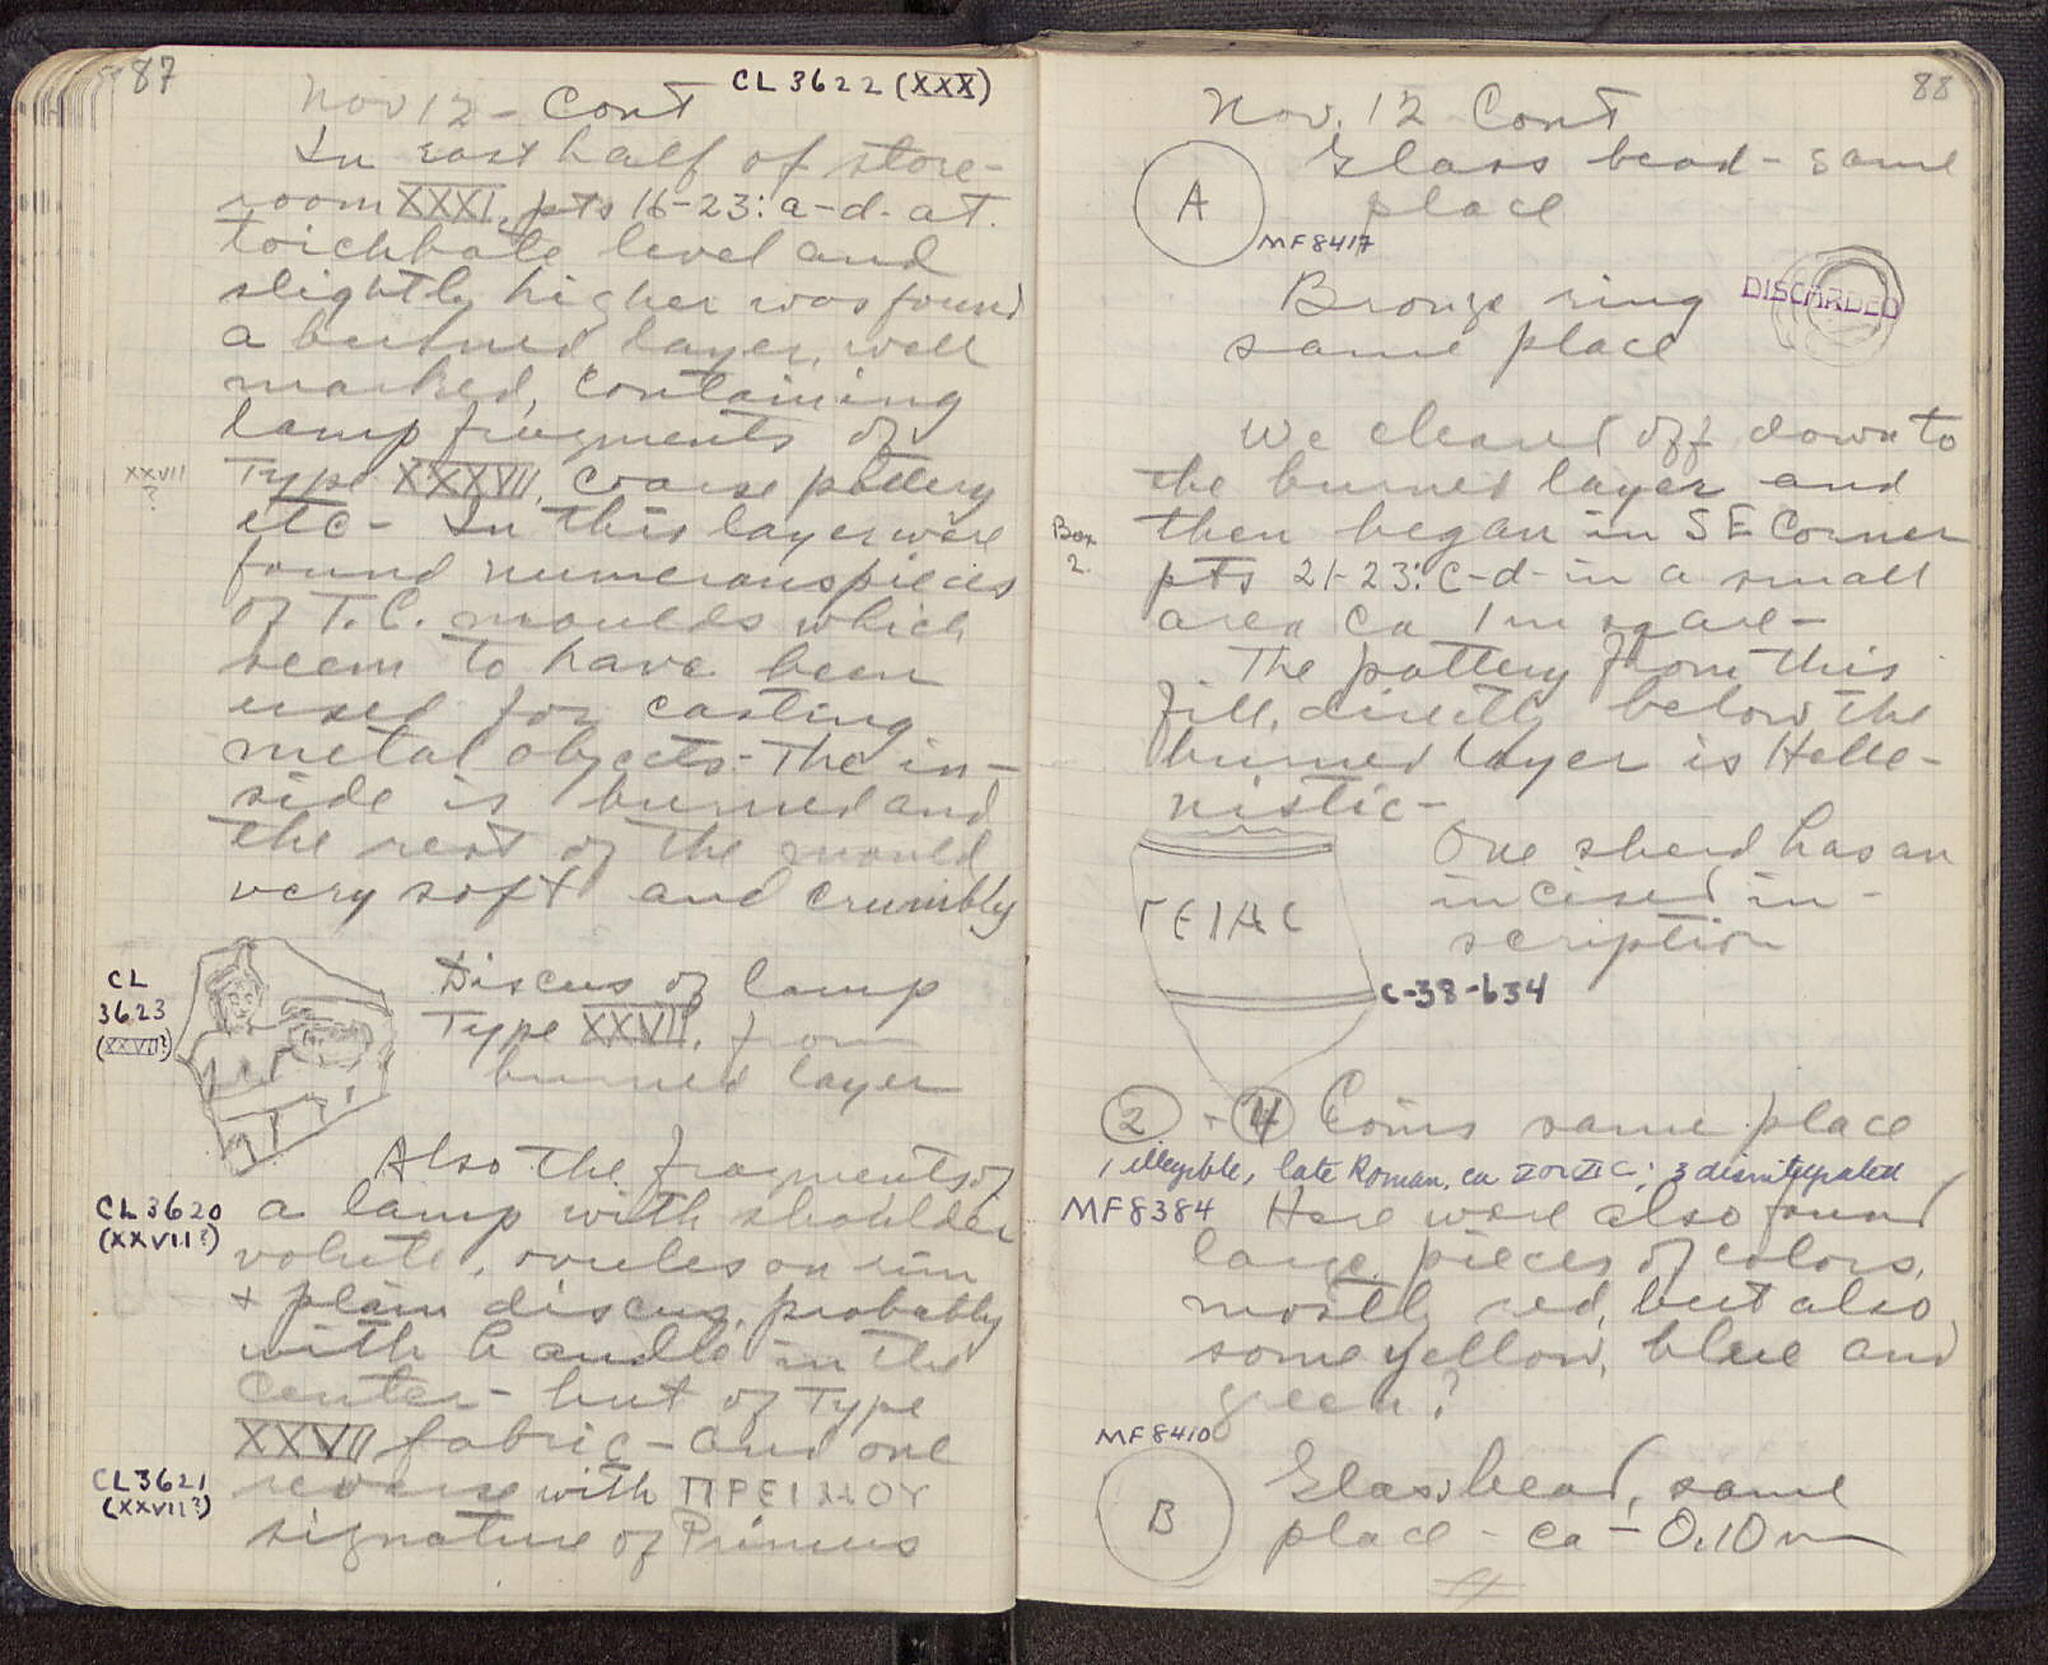 87
CL 3622 (XXX)
Nov 12 - Cont
In east half of store-
room XXXI, pts 16-23: a-d- at
toichbate level and
slightly higher was found
a burned layer, well
marked, containing
lamp fragments of
XXVII
?
Type XXXVII, coarse pottery
etc - In this layer were
found numerous pieces
of T.C. moulds which
seem to have been
used for casting
metal objects - The in-
side is burned and
the rest of the mould
very soft and crumbly
CL
3623
(XXVII?)
Discus of lamp
Type XXVII, from
burned layer
Also the fragments of
CL 3620
(XXVII?)
a lamp with shoulder
volute, ovules on rim
+ plain discus, probably
with handle in the
center - but of Type
XXVII fabric - and one
CL 3621
(XXVII?)
reverse with ΠΡΕΙΜΟΥ
signature of Primus
88
Nov. 12 Cont
A
Glass bead - same
place
MF 8417
Bronze ring
same place
DISCARDED
We cleared off down to
the burned layer and
Box
2
then began in SE Corner
pts 21-23: c-d- in a small
area ca 1 m square -
The pottery from this
fill, directly below the
burned layer is Helle-
nistic -
One sherd has an
incised in-
scription
ΓΕΙΑC
C-38-634
2 - 4 Coins same place
1 illegible, late Roman, ca V or VI C; 3 disintegrated
MF 8384
Here were also found
large pieces of colors,
mostly red, but also
some yellow, blue and
green?
MF 8410
B
Glass bead, same
place - ca - 0.10 m